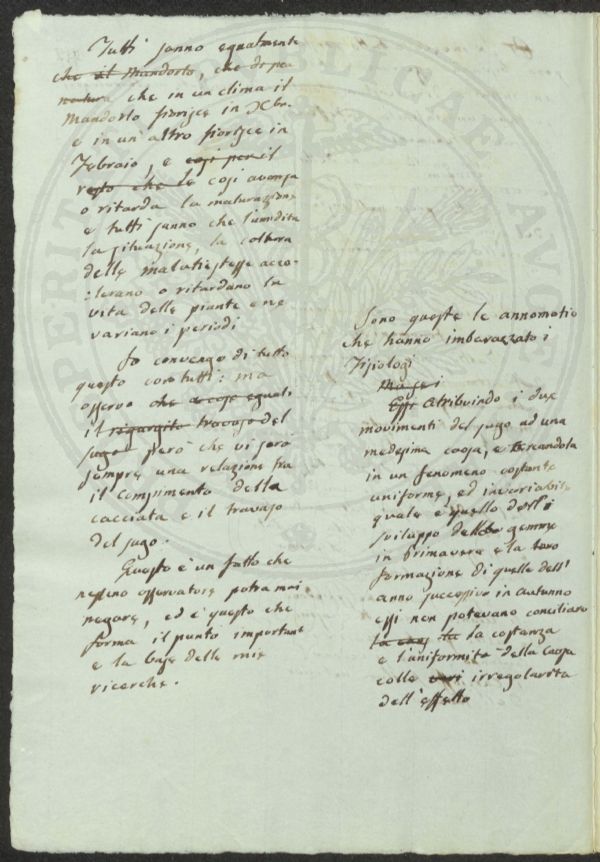 Tutti sanno egualmente
che il Mandorlo, che dopra
natura che in un clima il
Mandorlo fiorisce in Xbr.
e in un'altro fiorisce in
Febraio, e cosi per il
resto che le cosi avanza
o ritarda la maturazione
e tutti sanno che l'umidita
la situazione, la coltura
delle malatie stesse acce-
:lerano o ritardano la
vita delle piante e ne
variano i periodi
Io convengo di tutto
questo con tutti: ma
osservo che a cose eguali
il regorgito travaso del
sugo però che vi sara
sempre una relazione fra
il compimento della
cacciata e il travaso
del sugo.
Questo è un fatto che
nessuno osservatore potra mai
negare, ed è questo che
forma il punto important
e la base delle mie
ricerche.
Sono queste le annomalie
che hanno imbarazzato i
Fisiologi
Ma se i
Essi Atribuindo i due
movimenti del sugo ad una
medesima causa, e cercandola
in un fenomeno costante
uniforme, ed invariabile
quale e quello dell'i
sviluppo delle gemme
in primavera e la loro
formazione di quelle dell'
anno successivo in autunno
essi non potevano conciliare
la la costanza
e l'uniformità della Causa
colle irregolarita
dell'effetto